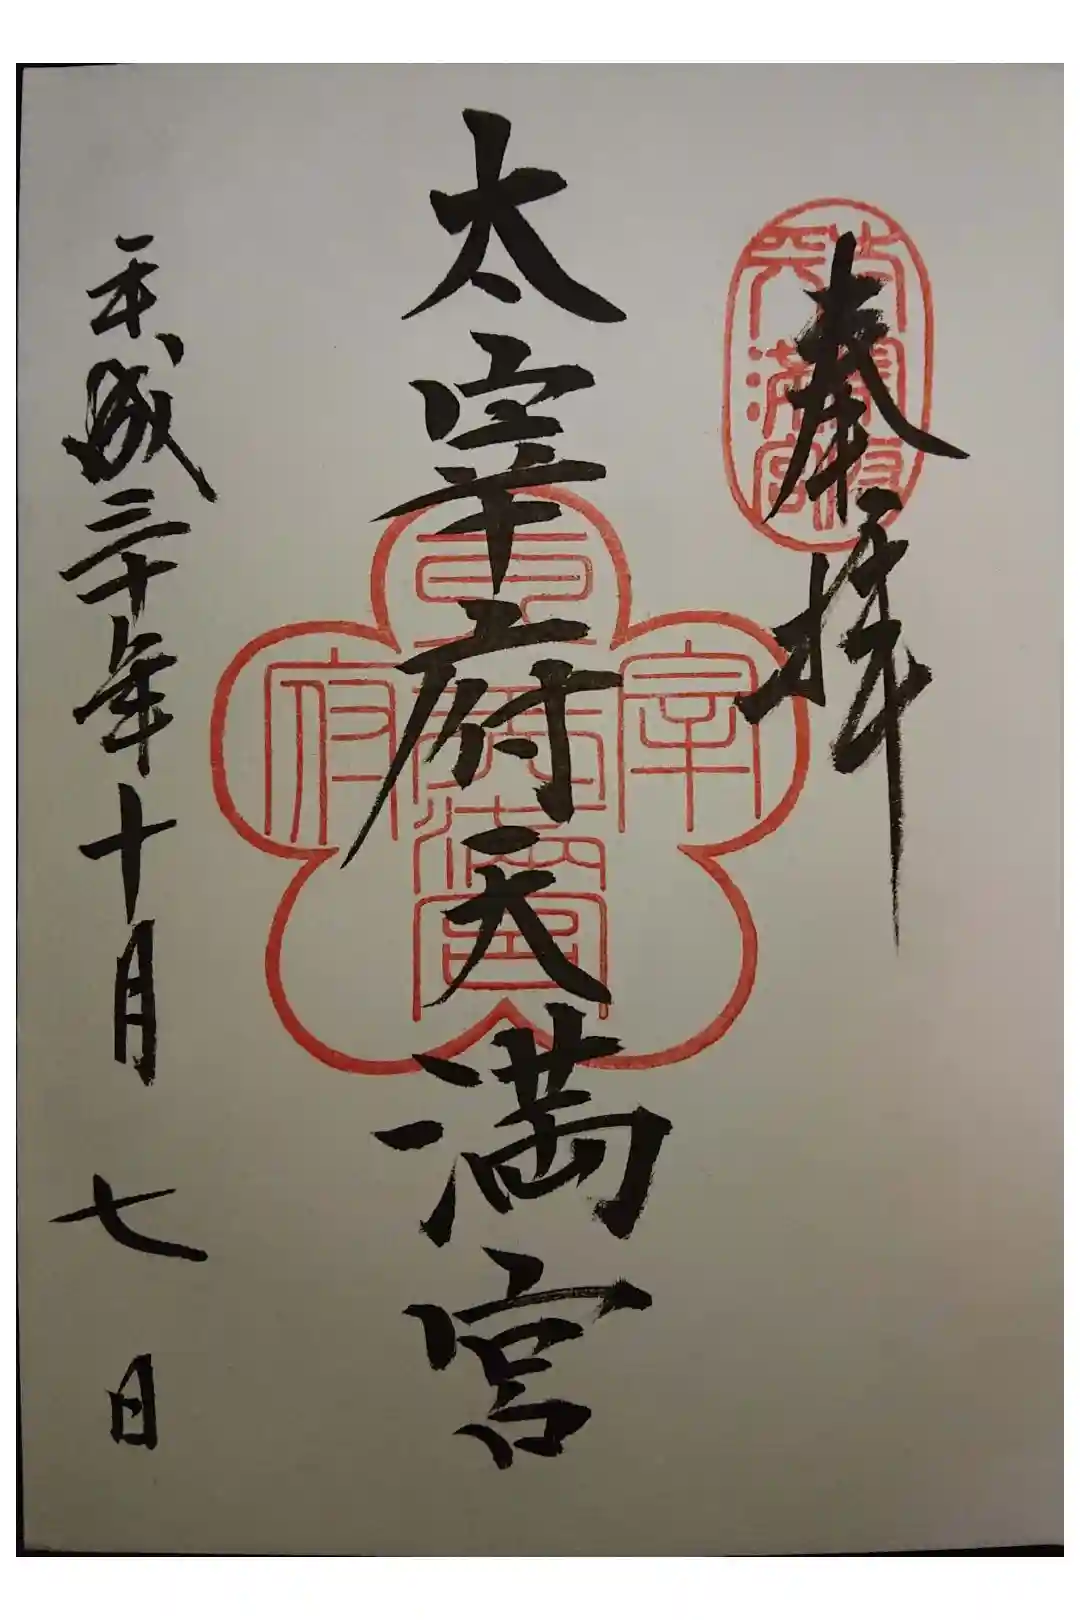 奉拝
太宰府天満宮
平成三十年十月七日
宰
府
満
宮